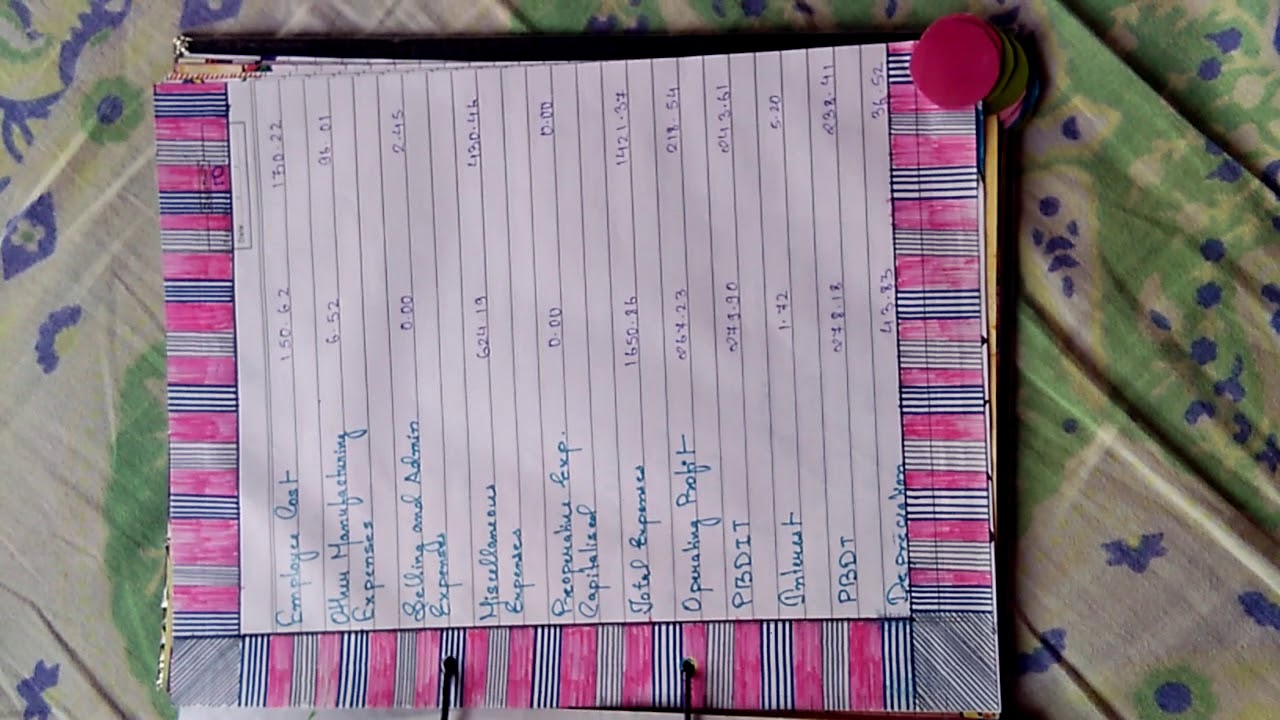 Date
Employee Cost 150.62 130.22
Other Manufacturing 6.52 96.01
Expenses
Selling and Admin 0.00 2.45
Expenses
Miscellaneous 624.19 430.46
Expenses
Preoperative Exp. 0.00 0.00
Capitalised
Total Expenses 1650.86 1421.37
Operating Profit 267.23 218.54
PBDIT 279.90 243.61
Interest 1.72 5.20
PBDT 278.18 238.41
Depreciation 43.83 36.52